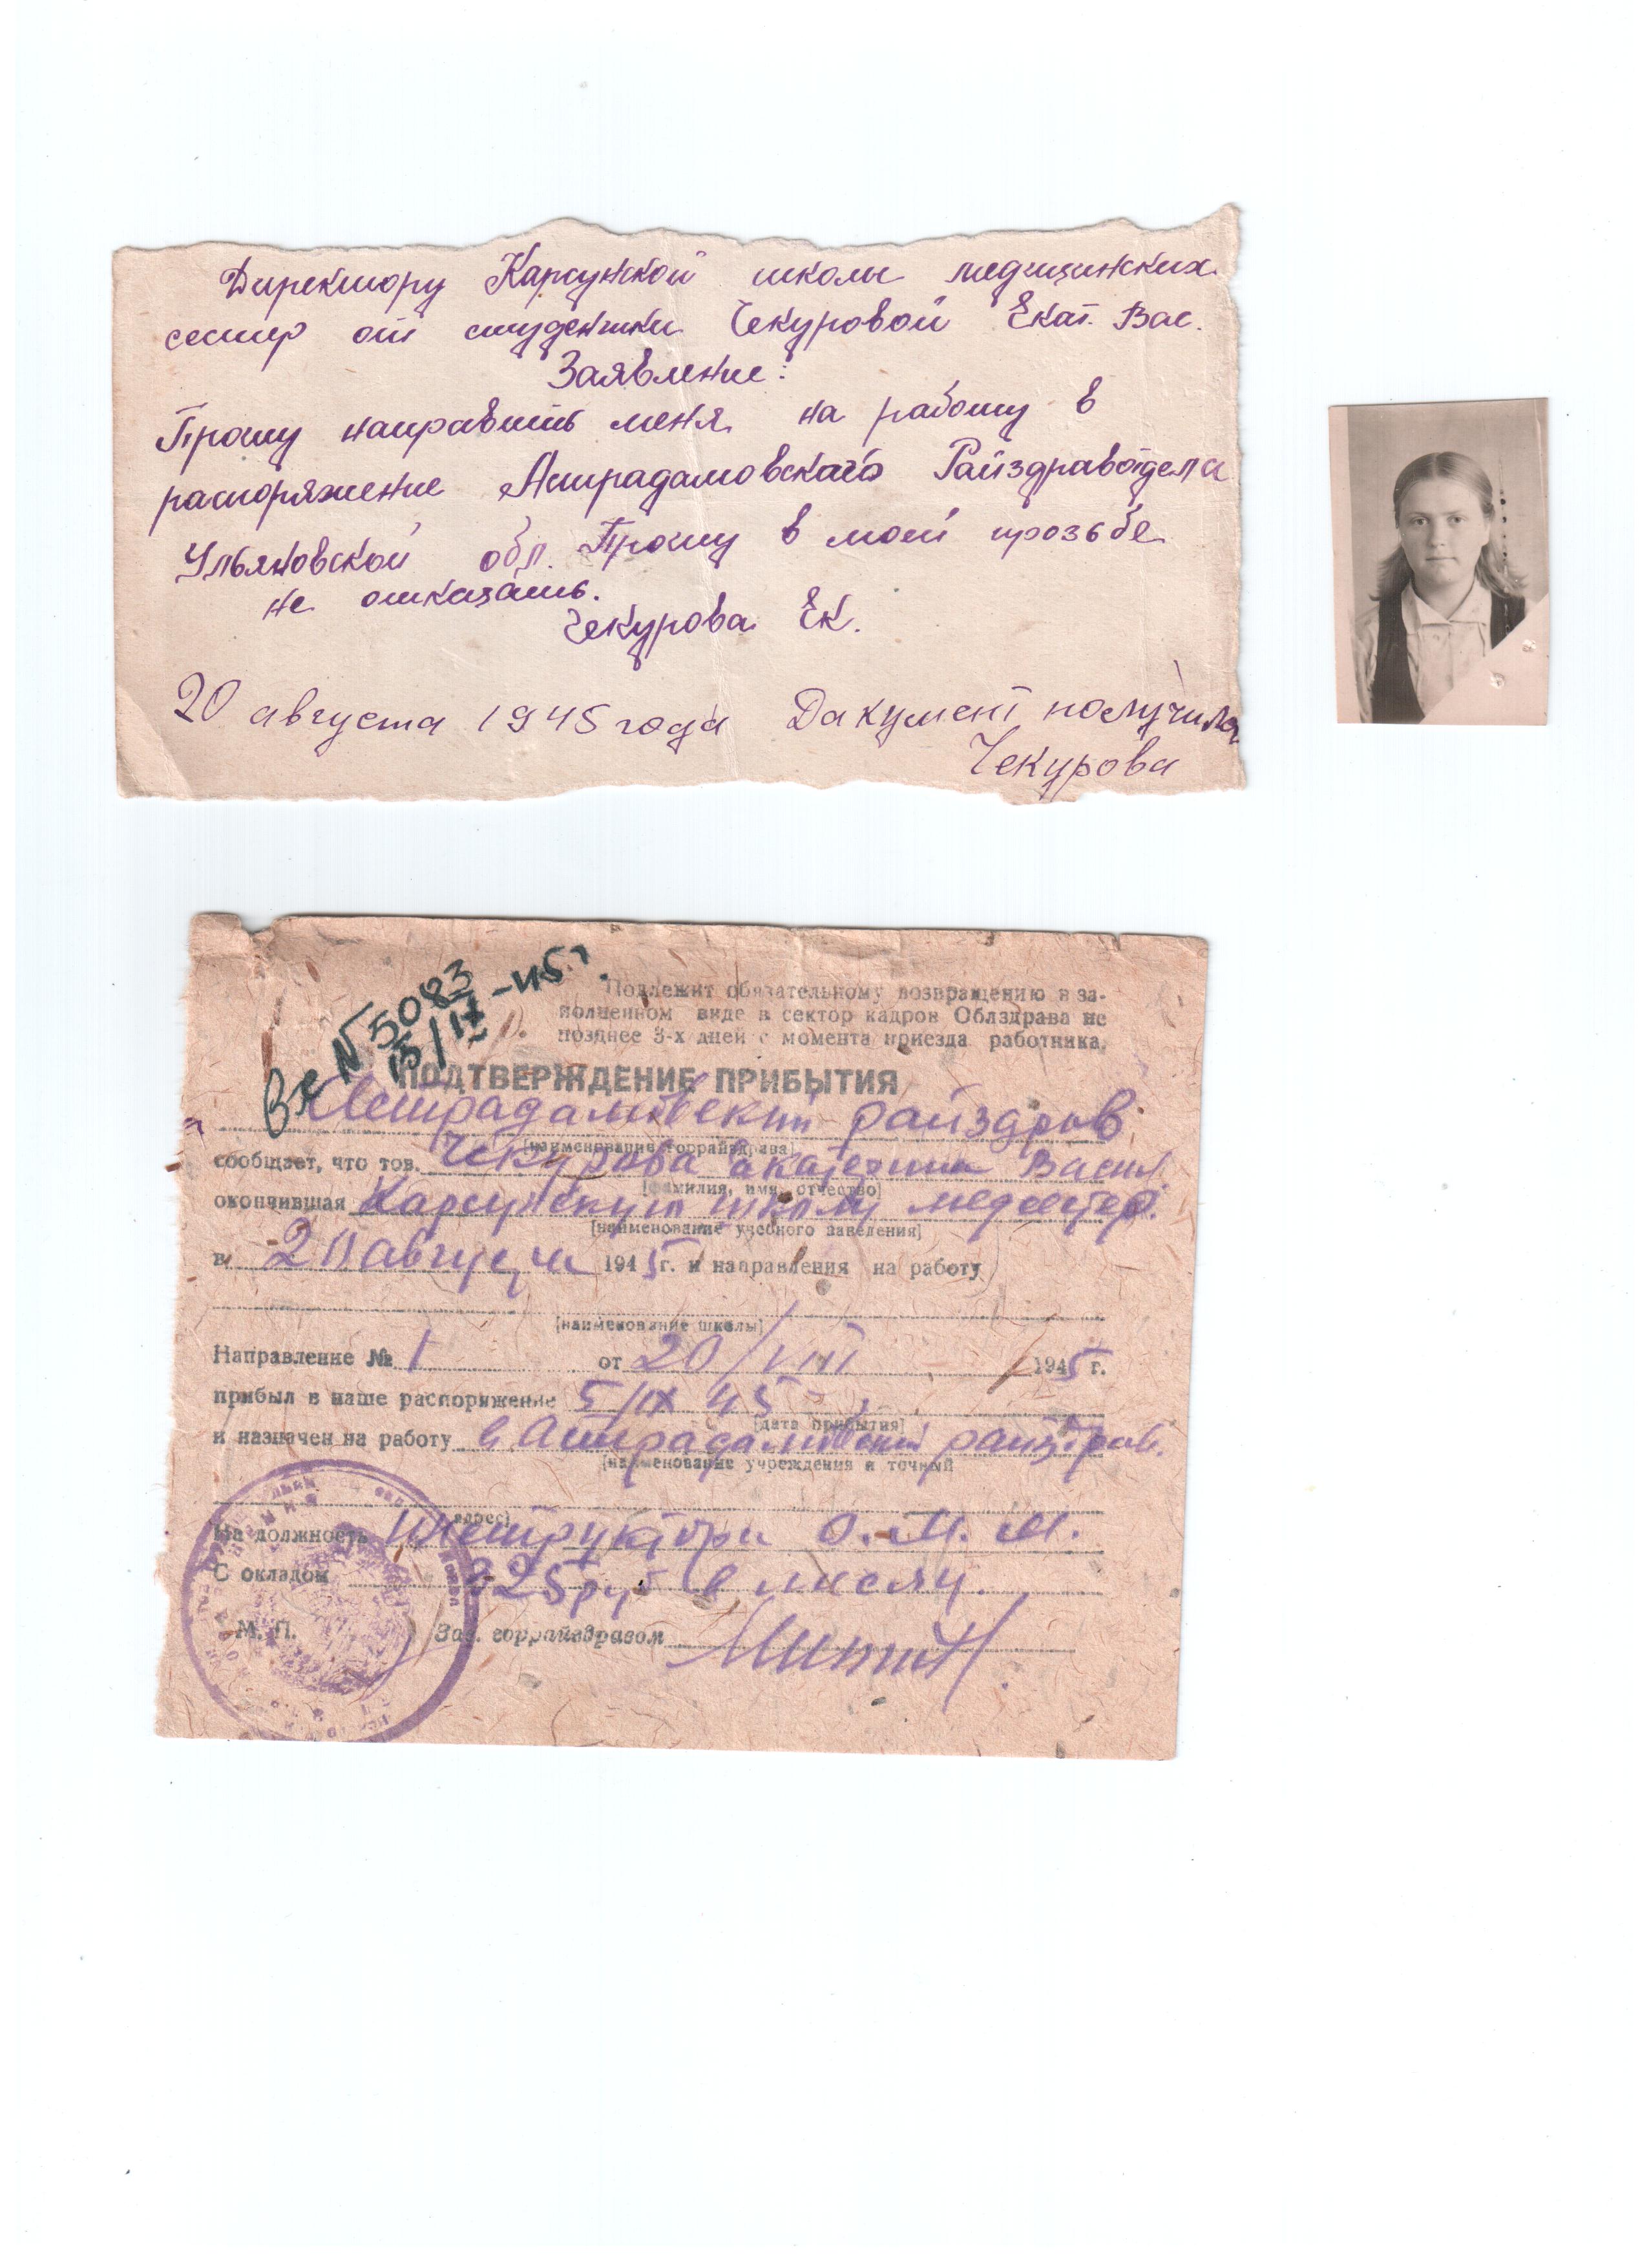 Директору Карсунской школы медицинских
сестер от студентки Чекуровой Екат. Вас.
Заявление:
Прошу направить меня на работу в
распоряжение Астрадамовского Райздравотдела
Ульяновской обл. Прошу в моей прозьбе
не отказать.
Чекурова Ек.
20 августа 1945 года Дакумент получила
Чекурова
Вх №5083
15/IX-45 г.
Подлежит обязательному возвращению в за-
полненном виде в сектор кадров Облздрава не
позднее 3-х дней с момента приезда работника.
ПОДТВЕРЖДЕНИЕ ПРИБЫТИЯ
Астрадамовский райздрав
[наименование горрайздрава]
сообщает, что тов. Чекурова Екатерина Васил.
[фамилия, имя, отчество]
окончившая Карсунскую школу медсестер.
[наименование учебного заведения]
в 20 августа 1945 г. и направления на работу
[наименование школы]
Направление № 1 от 20/VIII 1945 г.
прибыл в наше распоряжение 5/IX 45
[дата прибытия]
и назначен на работу в Астрадамовский райздрав.
[наименование учреждения и точный
адрес]
На должность Инструктора О.М.М.
С окладом 325 руб в месяц.
М. П. Зав. горрайздравом